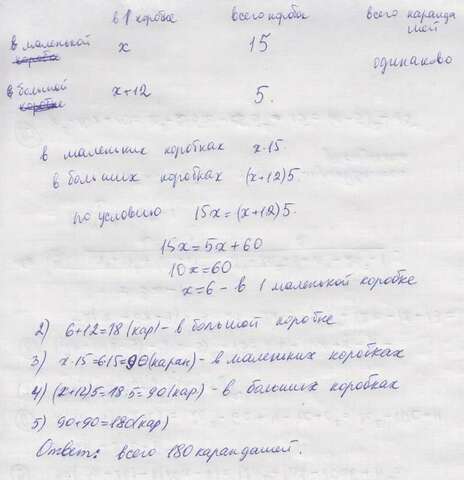 в 1 коробке всего коробок всего каранда
шей
в маленькой x 15
коробке
одинаково
в большой x+12 5.
коробке
в маленьких коробках x·15.
в больших коробках (x+12)5.
по условию 15x=(x+12)5.
15x=5x+60
10x=60
x=6 - в 1 маленькой коробке
2) 6+12=18 (кар) - в большой коробке
3) x·15=6·15=90 (каран) - в маленьких коробках
4) (x+12)5=18·5=90(кар) - в больших коробках
5) 90+90=180(кар)
Ответ: всего 180 карандашей.